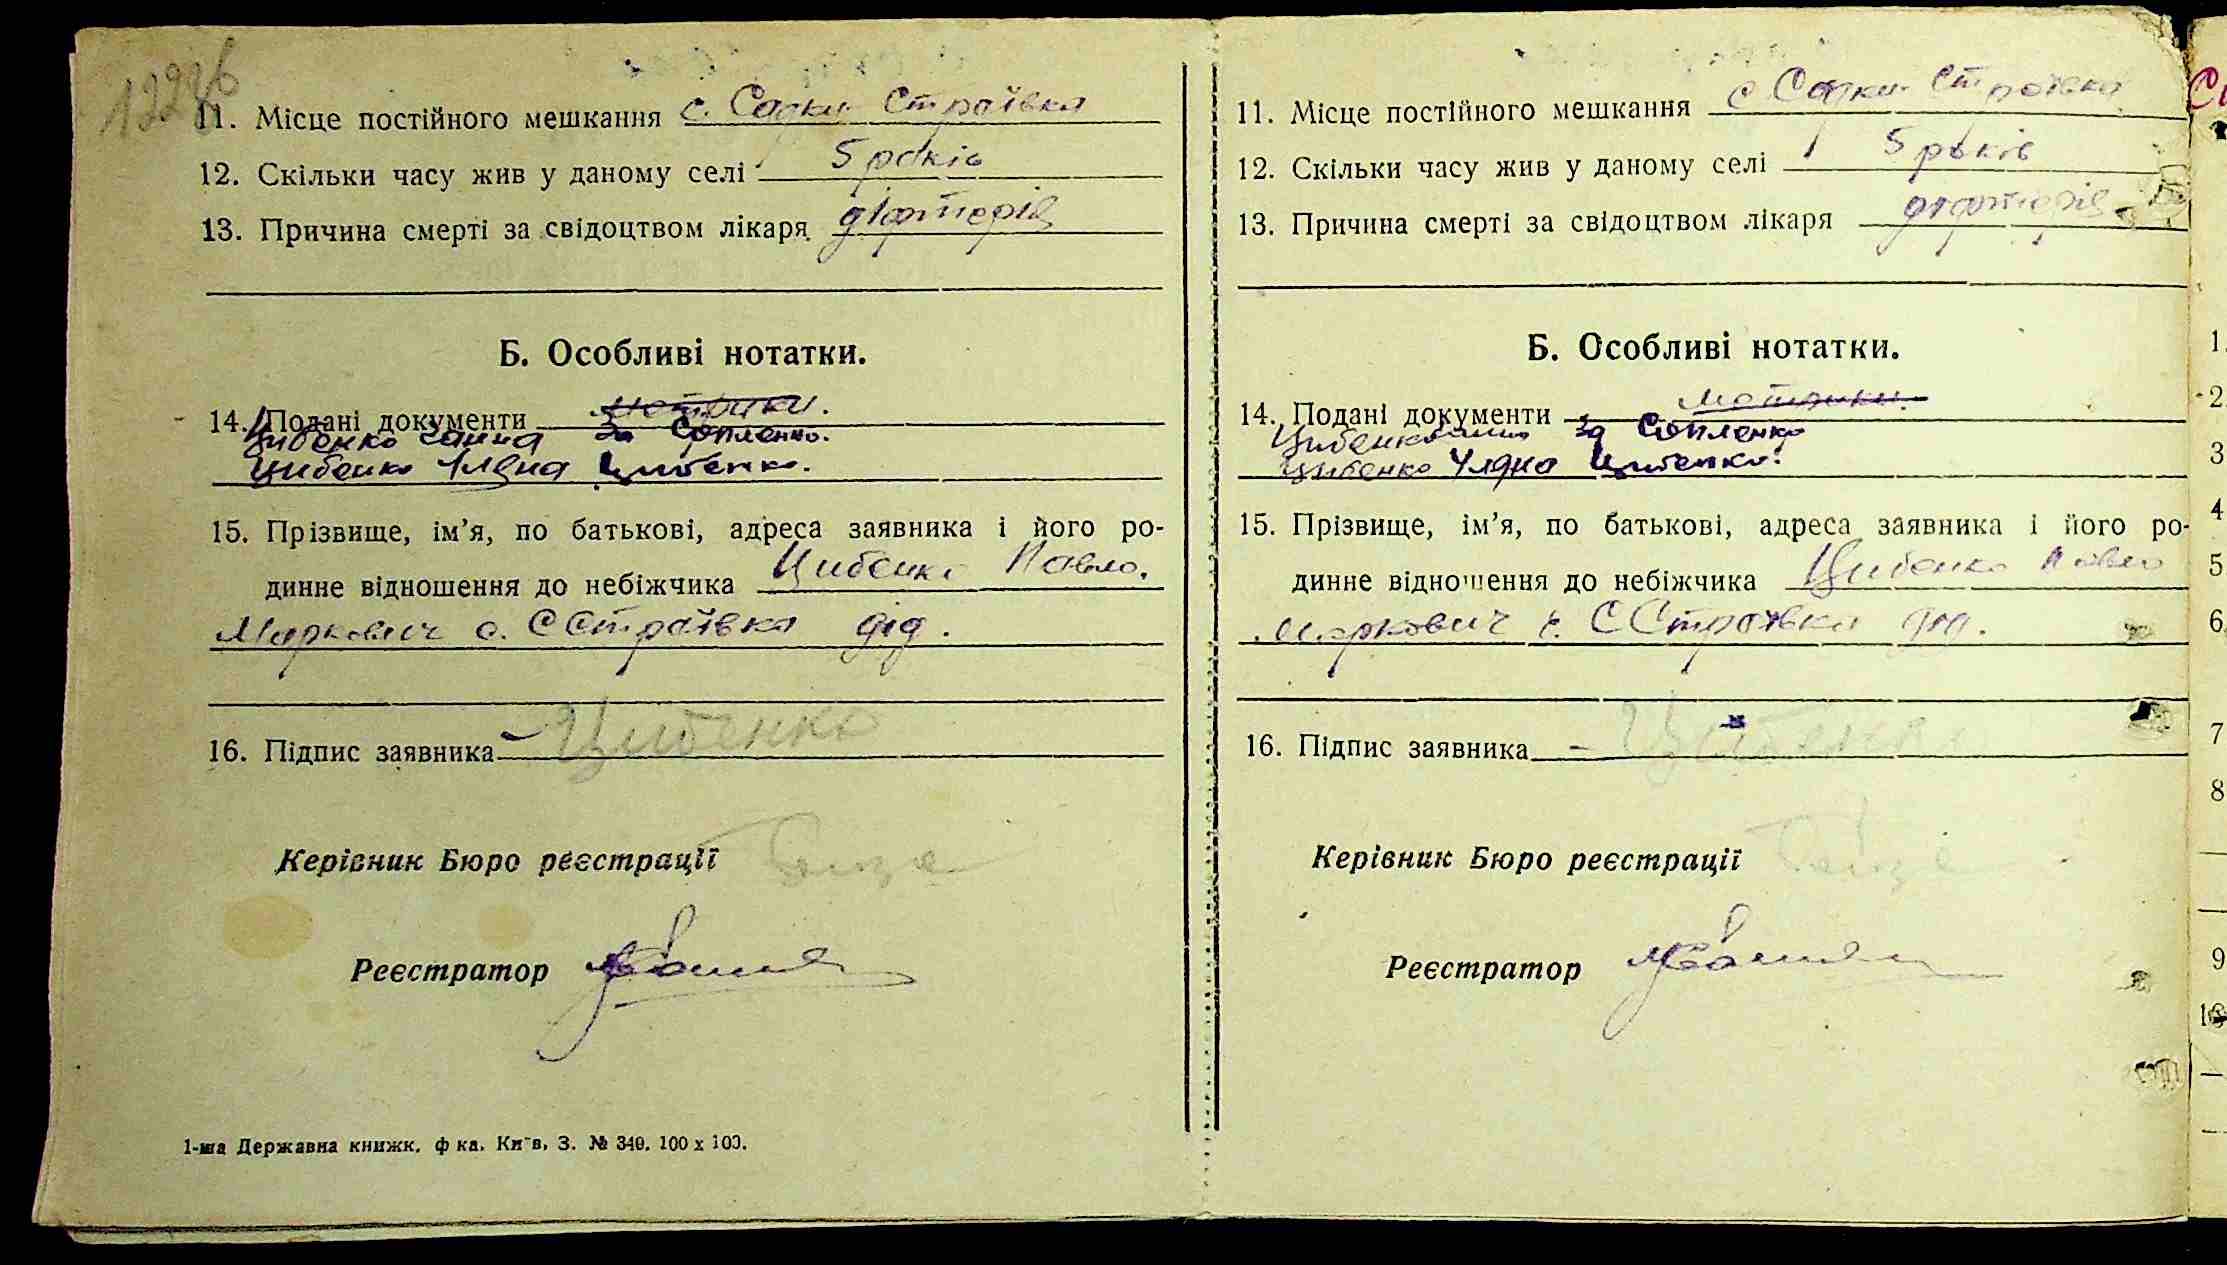 11. Місце постійного мешкання с. Садки Строївка
12. Скільки часу жив у даному селі 5 років
13. Причина смерті за свідоцтвом лікаря діфтерія
Б. Особливі нотатки.
14. Подані документи метрики.
Цибенко Ганна за Сопленко.
Цибенко Уляна Цибенко.
15. Прізвище, ім'я, по батькові, адреса заявника і його ро-
динне відношення до небіжчика Цибенко Павло.
Маркович с. С Строївка дід.
16. Підпис заявника Цибенко
Керівник Бюро реєстрації
Реєстратор
1-ша Державна книжк. ф-ка. Київ, З. № 340. 100 х 100.
11. Місце постійного мешкання с Садки Строївка
12. Скільки часу жив у даному селі 5 років
13. Причина смерті за свідоцтвом лікаря діфтерія
Б. Особливі нотатки.
14. Подані документи метрики.
Цибенко Ганна за Сопленко
Цибенко Уляна Цибенко.
15. Прізвище, ім'я, по батькові, адреса заявника і його ро-
динне відношення до небіжчика Цибенко Павло
Маркович с. С Строївка дід.
16. Підпис заявника Цибенко
Керівник Бюро реєстрації
Реєстратор